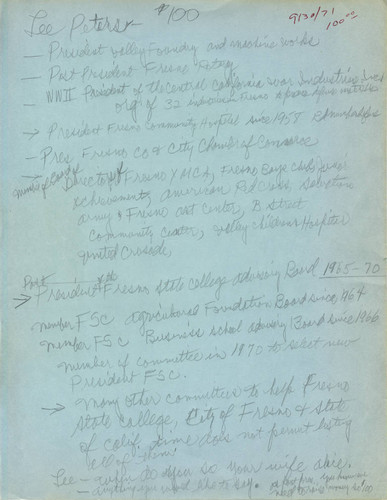 $100
9/30/71
100.00
Lee Peters -
- President Valley Foundry and machine works
- Past President Fresno Rotary
- WWII President of the Central California War Industries Inc
org of 32
→ President Fresno Community Hospital since 1958
- Pres. Fresno Co & City Chamber of Commerce
Director of Fresno YMCA, Fresno Boys Club, Junior
achievement, American Red Cross, Salvation
Army & Fresno Art Center, B Street
Community Center, Valley Childrens Hospital
United Crusade,
Past
→ President of Fresno State College advisory Board 1965-70
member FSC agricultural Foundation Board since 1964
member FSC Business school advisory Board since 1966
member of committee in 1970 to select new
President FSC.
→ Many other committees to help Fresno
State College, City of Fresno & State
of Calif. time does not permit listing
all of them.
Lee -
anything you would like to say.